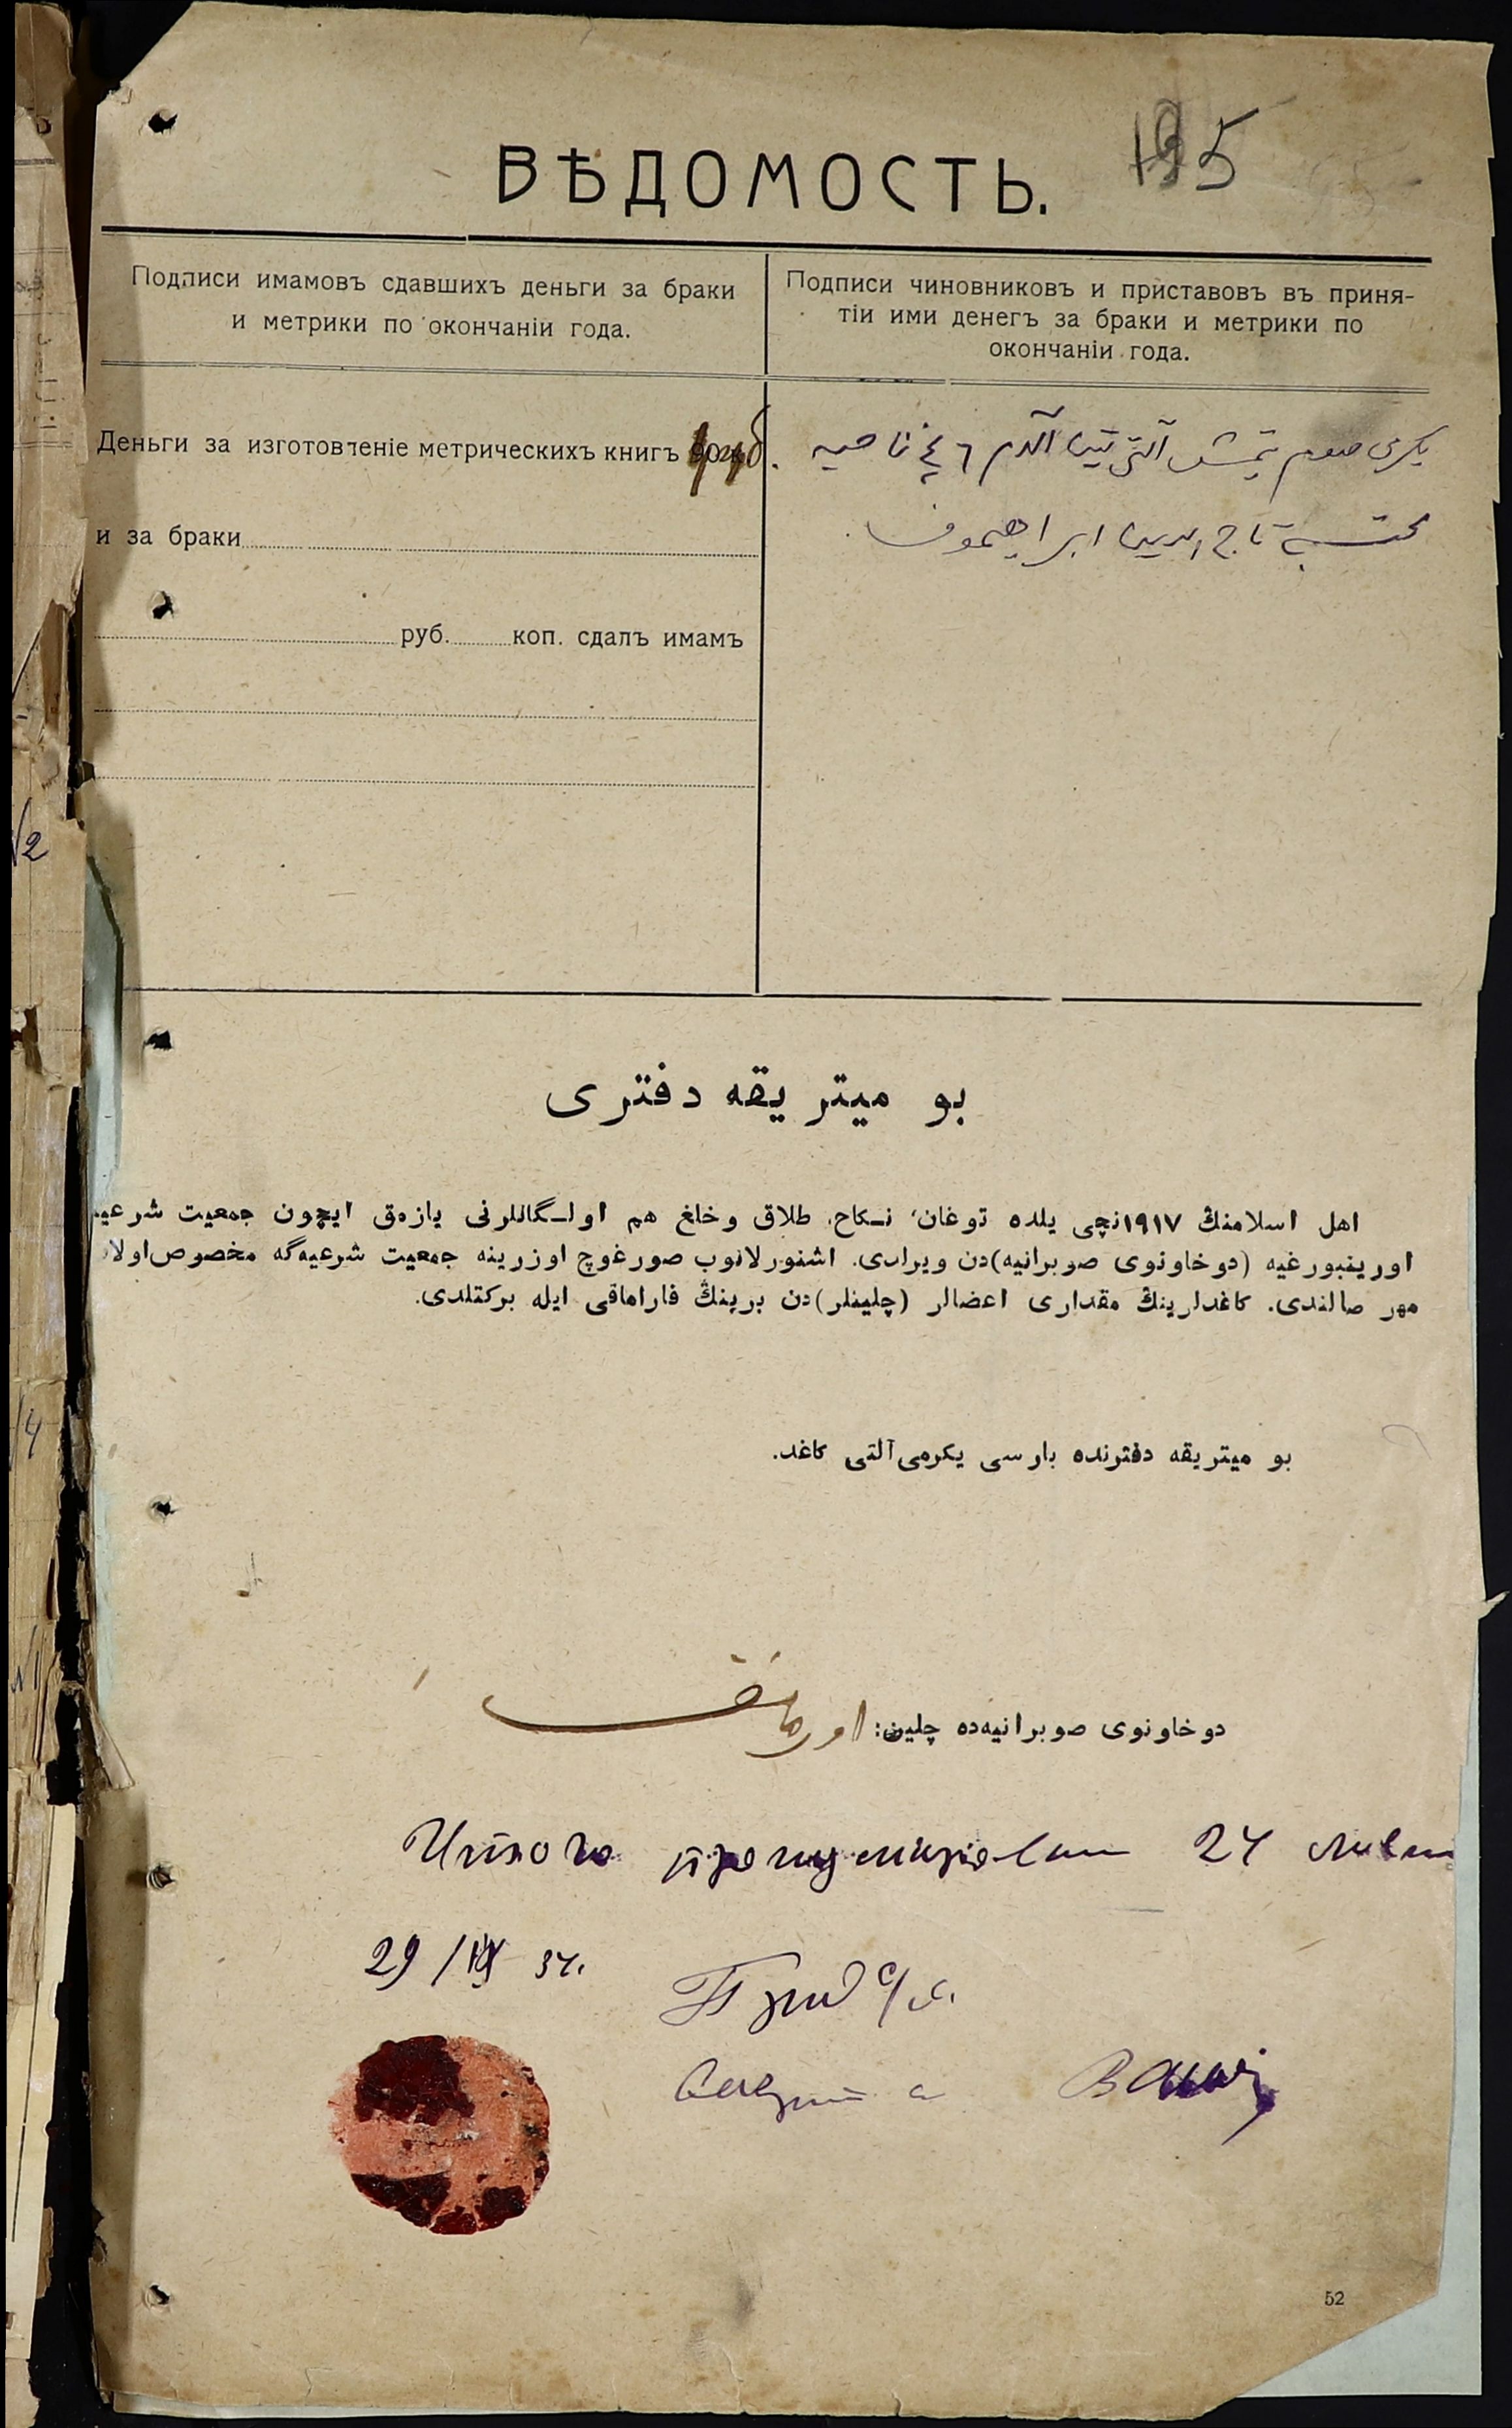 195
ВѢДОМОСТЬ.
Подписи имамовъ сдавшихъ деньги за браки
и метрики по окончаніи года.
Подписи чиновниковъ и приставовъ въ приня-
тіи ими денегъ за браки и метрики по
окончаніи года.
Деньги за изготовленіе метрическихъ книгъ
и за браки
руб. коп. сдалъ имамъ
یکرمی صوم یتمش آلتی تین آلدم
محتسب تاج الدین ابراهیموف
بو میتریقه دفتری
اهل اسلامنڭ ۱۹۱۷نچی یلده توغان، نـکاح، طلاق وخلغ هم اولـگانلرنی یازەق ایچون جمعیت شرعیه
اورینبورغیه (دوخاونوی صوبرانیه)دن ویرلدی. اشنورلانوب صورغوچ اوزرینه جمعیت شرعیه‌گه مخصوص اولان
مهر صالندی. کاغدلرینڭ مقداری اعضالر (چلینلر)دن برینڭ فاراماقی ایله برکتلدی.
بو میتریقه دفترنده بارسی یکرمی آلتی کاغد.
دوخاونوی صوبرانیه‌ده چلین:
Итого пронумеровано 24 листа
29/IX 34.
Пред с/с.
Секрет
52